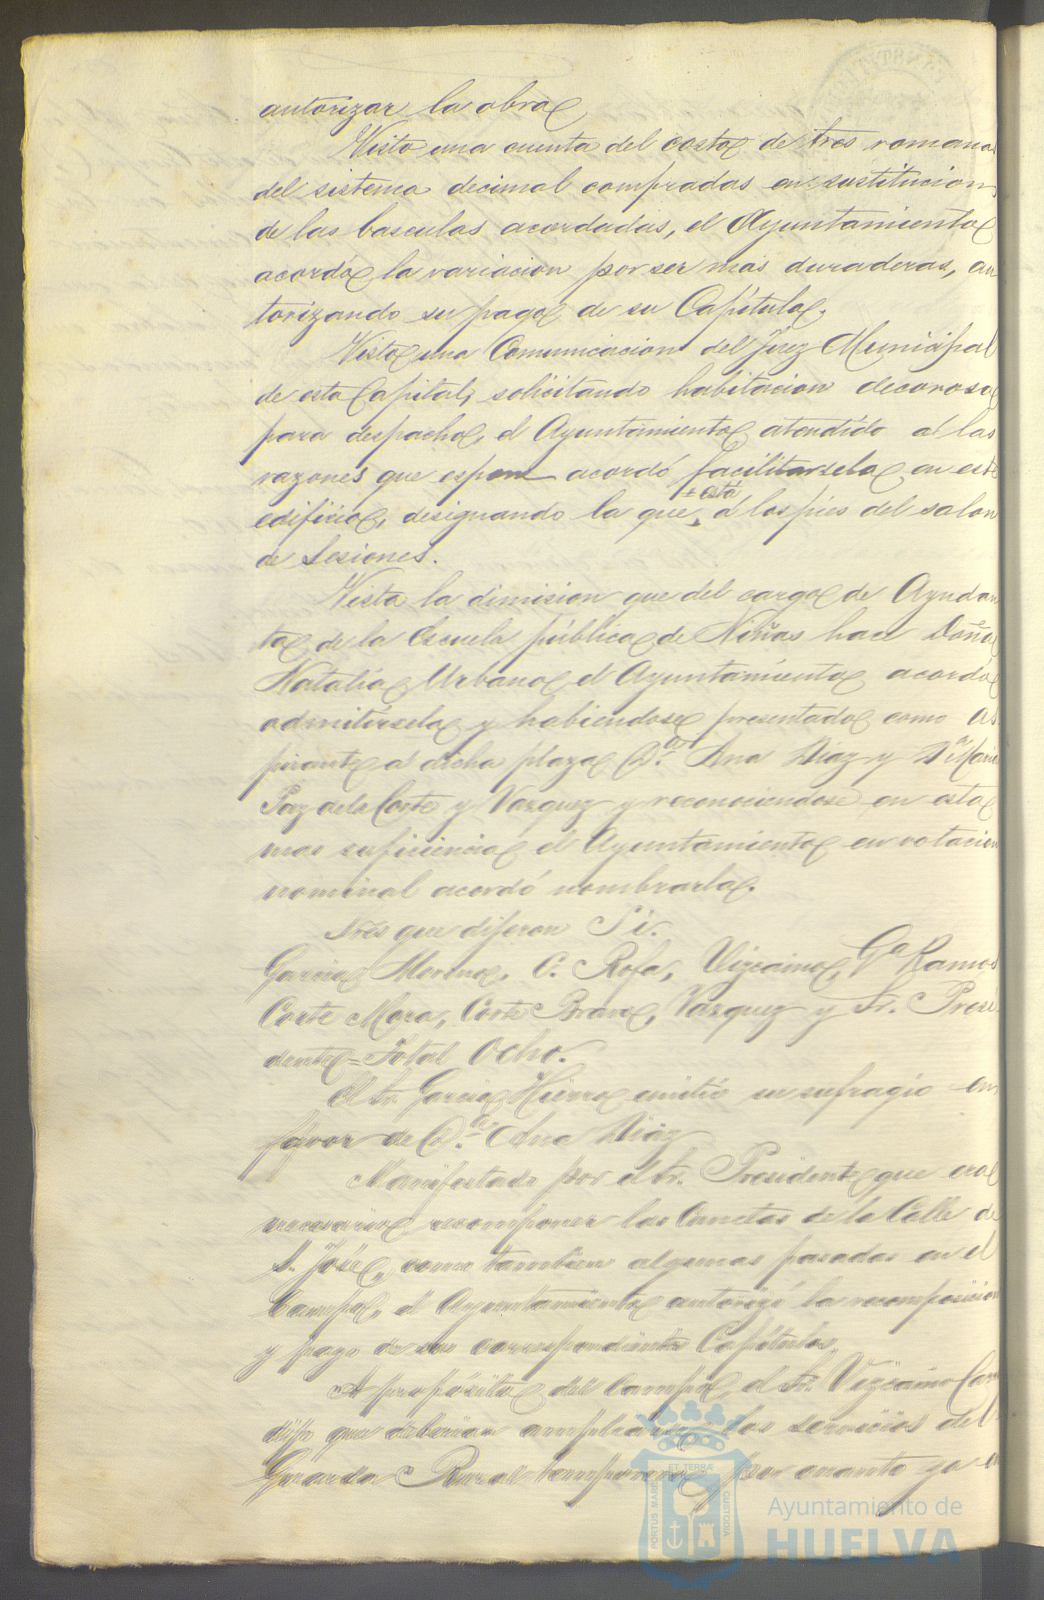 autorizar la obra
Visto una cuenta del costo de tres romanas
del sistema decimal compradas en sustitucion
de las basculas acordadas, el Ayuntamiento
acordó la variacion por ser mas duraderas, au
torizando su pago de su Capítulo.
Visto una Comunicacion del Juez Municipal
de esta Capital, solicitando habitacion decorosa
para despacho, el Ayuntamiento atendido a las
razones que espone acordó facilitarsela en este
+ está
edificio, designando la que + á los pies del salon
de Sesiones.
Vista la dimision que del cargo de Ayudan
te de la Escuela pública de Niñas hace Doña
Natalia Urbano, el Ayuntamiento acordó
admitirsela y habiendose presentado como as
pirante a dicha plaza D.ª Ana Diaz y D.ª Maria
Paz de la Corte y Vazquez y reconociendose en esta
mas suficiencia el Ayuntamiento en votacion
nominal acordó nombrarla.
Sres que dijeron Si.
Garcia Moreno, C. Rofa, Vizcaino, Gª Ramos
Corte Mora, Corte Bravo, Vazquez y Sr. Presi
dente = Total Ocho.
El Sr. Garcia Hierro emitió su sufragio en
favor de D.ª Ana Diaz
Manifestado por el Sr. Presidente que era
necesario recomponer las Cunetas de la Calle de
S. José, como tambien algunas pasadas en el
Campo, el Ayuntamiento autorizó la recomposicion
y pago de sus correspondientes Capítulos.
A propósito del Campo, el Sr. Vizcaino
dijo que debian ampliarse los servicios del
Guarda Rural temporero, por cuanto ya
PORTUS MARIS
ET TERRÆ
CUSTODIA
Ayuntamiento de
HUELVA